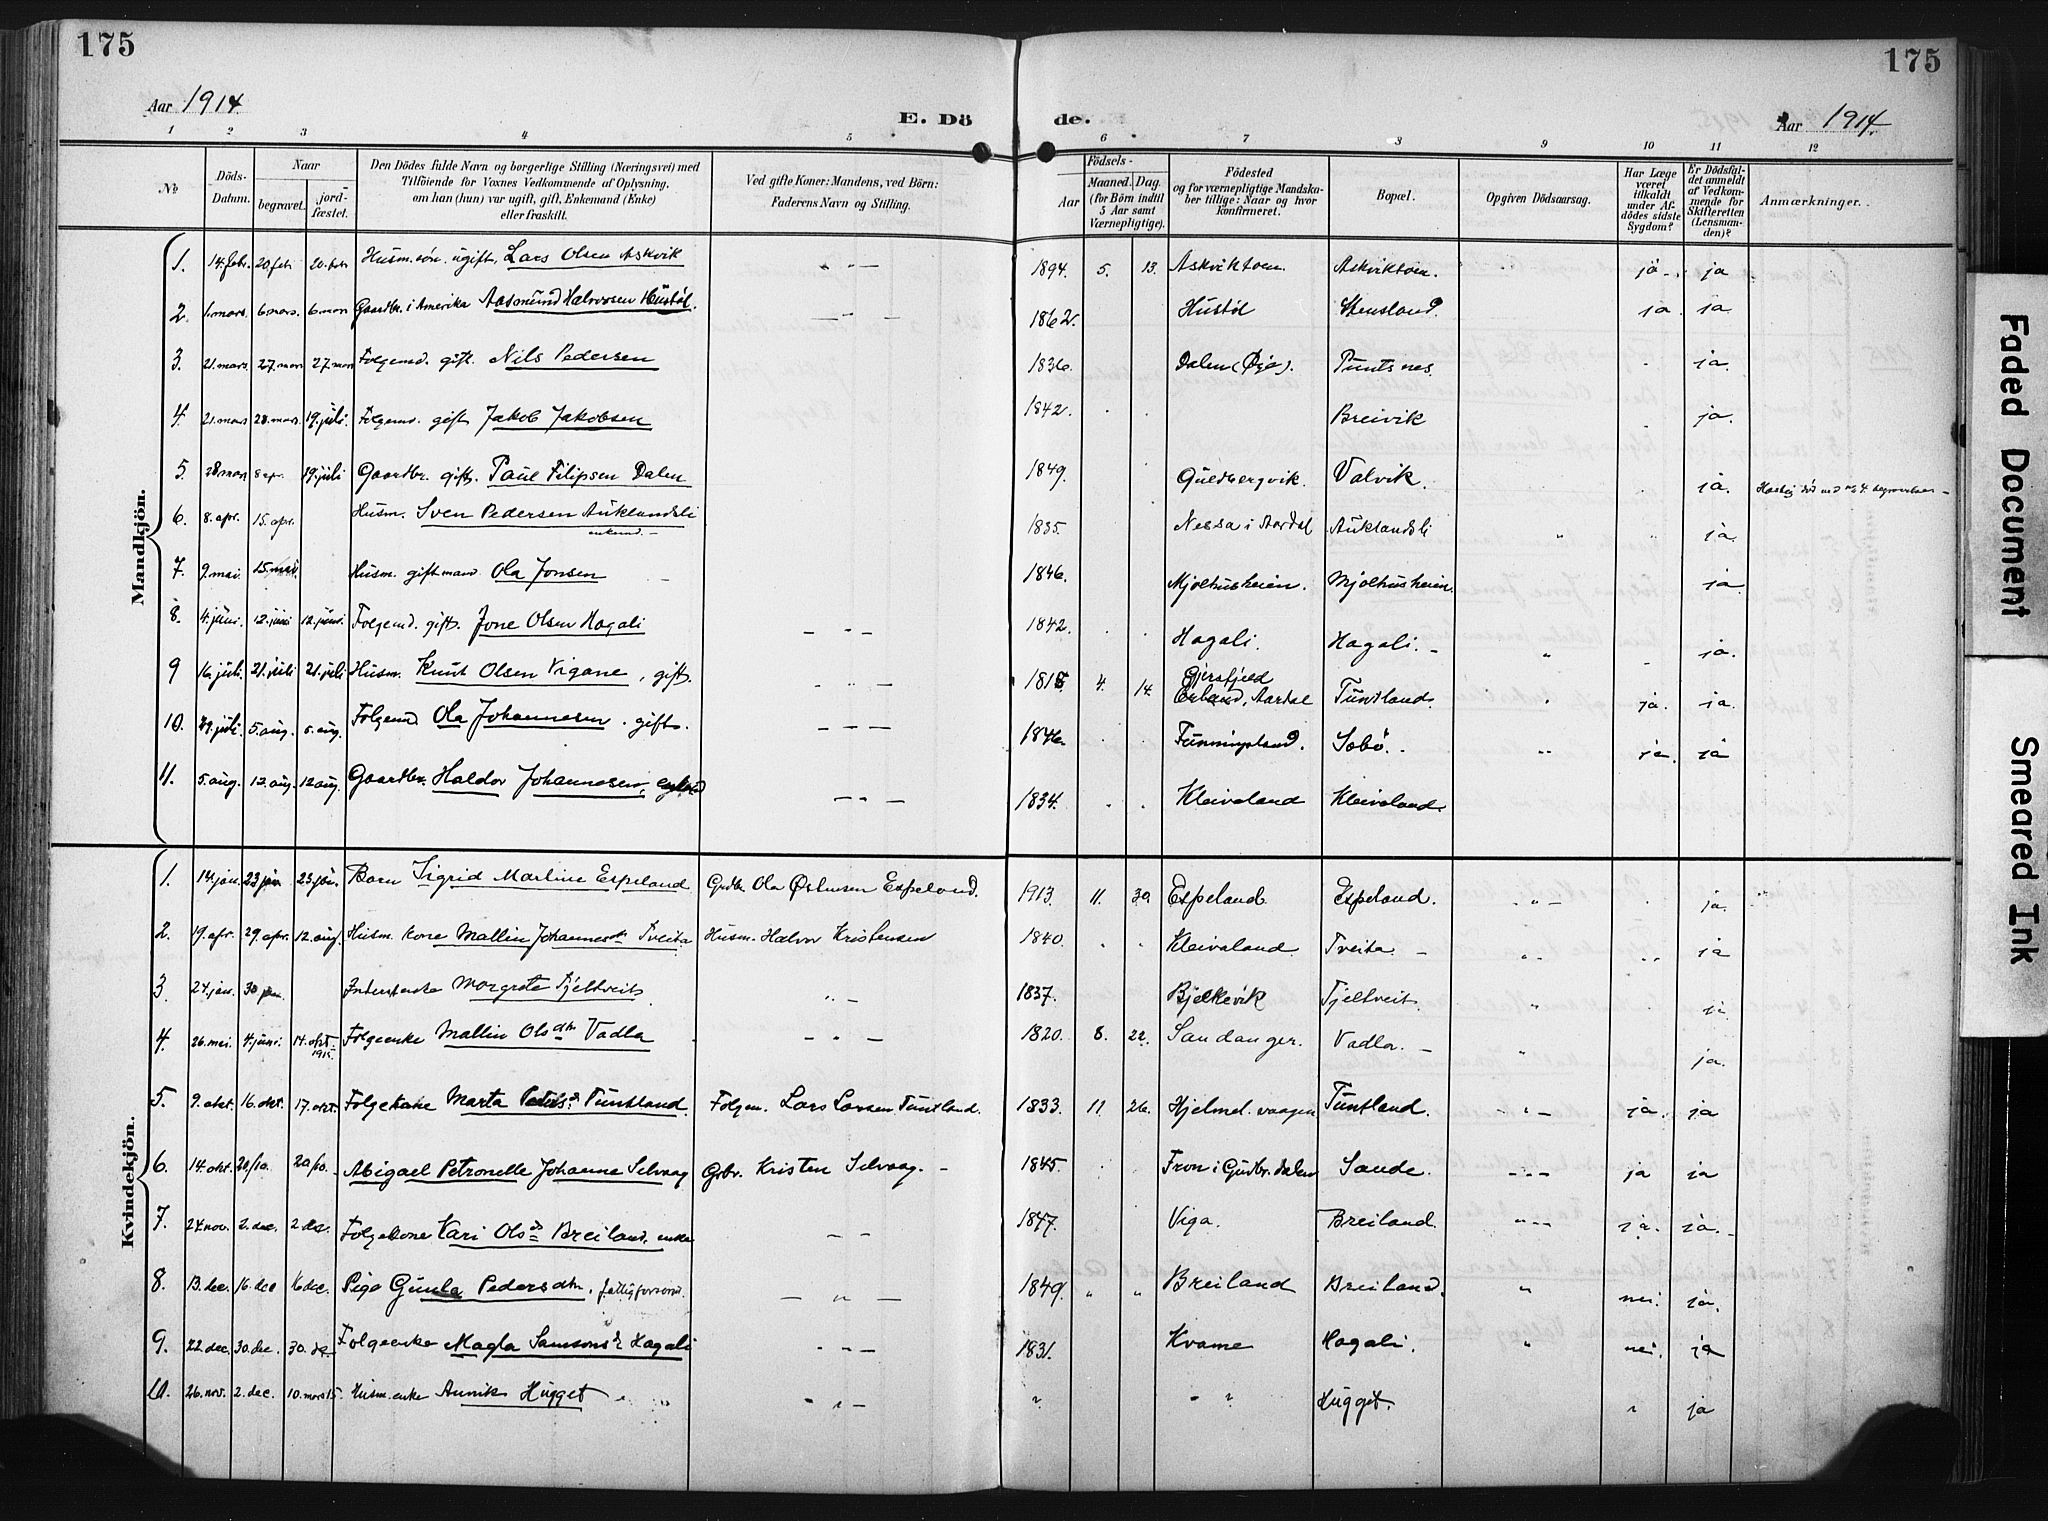 175
175
Aar 1914.
E. Dö
de.
Aar 1914.
1 2 3 4 5 6 7 8 9 10 11 12
No
Döds-Datum.
Naar
begravet.
jord-fæstet.
Den Dödes fulde Navn og borgerlige Stilling (Næringsvei) med
Tilföiende for Voxnes Vedkommende af Oplysning,
om han (hun) var ugift, gift, Enkemand (Enke)
eller fraskilt.
Ved gifte Koner: Mandens, ved Börn:
Faderens Navn og Stilling.
Födsels-
Aar
Maaned. Dag.
(for Börn indtil
5 Aar samt
Værnepligtige).
Födested
og for værnepligtige Mandska-
ber tillige: Naar og hvor
konfirmeret.
Bopæl.
Opgiven Dödsaarsag.
Har Læge
været
tilkaldt
under Af-
dödes sidste
Sygdom?
Er Dödsfal-
det anmeldt
af Vedkom-
mende for
Skifteretten
(Lensman-
den)?
Anmærkninger.
Mandkjön.
1. 14 febr. 20 feb 20. feb Husm. sön. ugift, Lars Olsen Askvik " 1894. 5. 13. Askviktoen. Askviktoen. ja ja
2. 1. mars. 6 mars. 6 mars Gaardbr. i Amerika Aasmund Halvorsen Hustöl. " 1862. Hustöl Stensland. ja. ja.
3. 21. mars. 27. mars 27. mars Folgemd. gift. Nils Pedersen 1836. Dalen (Öye). Puntsnes. ja.
4. 21. mars 28. mars. 19. juli. Folgemd. gift Jakob Jakobsen 1842. Breivik ja.
5. 28 mars 8 apr. 19. juli Gaardbr. gift. Paul Filipsen Dalen 1849. Guldbergvik. Valvik. ja.
6. 8. apr. 15. apr. Husm. Sven Pedersen Auklandsli enkemd. 1835. Nessa i Aardal Auklandsli " ja.
7. 9. mai. 15. mai. Husm. gift mand. Ola Jonsen 1846. Mjölhusheien. Mjölhusheien. ja
8. 4. juni. 12. juni 12. juni. Folgemd. gift. Jone Olsen Hagali " 1842. Hagali. Hagali. " ja.
9 16. juli. 21. juli 21. juli Husm. Knut Olsen Vigane, gift. " 1815 4. 14. Gjersfjeld Erland, Aardal Tuntland. ja. ja.
10. 29. juli. 5. aug. 5. aug. Folgemd Ola Johannesen. gift. 1846. Funningsland. Sobö. " ja. ja
11. 5. aug. 12. aug. 12 aug. Gaardbr. Haldor Johannesen, enkemd 1834. Kleivaland Kleivaland.
Kvindekjön.
1. 14 jan. 23 jan 23 jan. Barn Sigrid Martine Espeland Grdbr. Ola Östensen Espeland. 1913. 11. 30. Espeland. Espeland. " ja.
2. 19. apr. 29. apr. 12. aug. Husm. kone Mallin Johannesdtr Tveita Husm. Halvor Kristensen 1840. Kleivaland. Tveita. " ja
3. 24. jan. 30 jan. Margrete Tjeltveit " 1837. Bjelkevik Tjeltveit. " ja
4. 26. mai. 4. juni. 14. okt. 1915. Folgeenke Mallin Olsdtr Vadla " 1820. 8. 22. Sandanger. Vadla. " ja.
5. 9. okt. 16. okt. 17. okt. Folgekone Marta Peders dtr Tuntland. Folgem. Lars Larsen Tuntland. 1833. 11. 26. Hjelmel. vaagen Tuntland. " ja. ja
6. 14. okt. 20/10. 20/10. Abigael Petronelle Johanne Selvaag Grbr. Kristen Selvaag. 1845. Fron i Gudbr. dalen Sande. ja ja
7. 24. nov. 2. dec. 2 dec. Folgekone Kari Olsd. Breiland, enke 1847. Viga. Breiland. " ja. ja.
8. 13. dec. 16. dec 16 dec. Pige Gunla Pedersdtr, fattigforsörd. " 1849. " " Breiland Breiland. " nei. ja.
9. 22. dec. 30. dec. 30. dec Folgeenke Magla Samsonsd. Hagali " 1831. Kvame Hagali. " nei. ja
10. 26. nov. 2. dec. 10. mars 15. Husm. enke Annik Hugget " " " Hugget. " ja
Faded Document
Smeared Ink